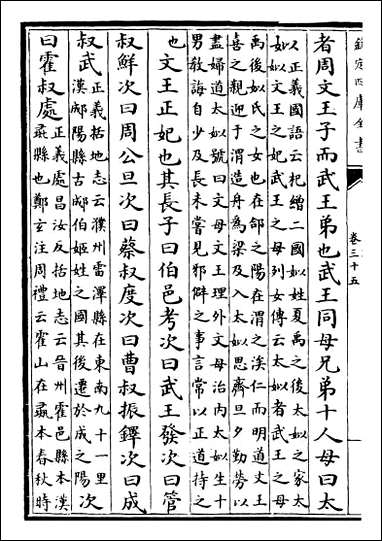 欽定四庫全書
卷三十五
者周文王子而武王弟也武王同母兄弟十人母曰太
姒正義國語云杞繒二國姒姓夏禹之後太姒之家太
姒文王之妃武王之母列女傳云太姒者武王之母
禹後姒氏之女也在郃之陽在渭之涘仁而明道文王
喜之親迎于渭造舟為梁及入太姒思齊旦夕勤勞以
盡婦道太姒號曰文母文王理外文母治內太姒生十
男教誨自少及長未嘗見邪僻之事言常以正道持之
也文王正妃也其長子曰伯邑考次曰武王發次曰管
叔鮮次曰周公旦次曰蔡叔度次曰曹叔振鐸次曰成
叔武正義括地志云濮州雷澤縣在東南九十一里
漢郕陽縣古郕伯姬姓之國其後遷於成之陽次
曰霍叔處正義處昌汝反括地志云晉州霍邑縣本漢
彘縣也鄭玄注周禮云霍山在彘本春秋時